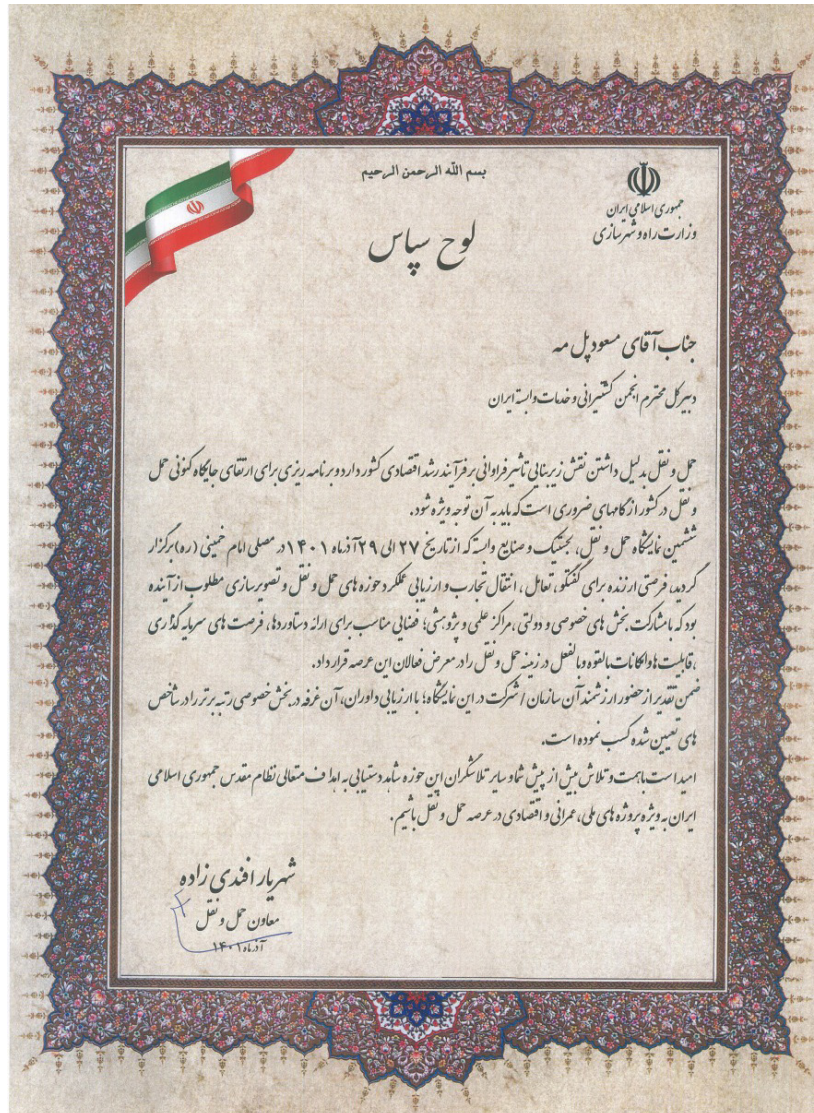 بسم الله الرحمن الرحیم
جمهوری اسلامی ایران
وزارت راه و شهرسازی
لوح سپاس
جناب آقای مسعود پل مه
دبیرکل محترم انجمن کشتیرانی و خدمات وابسته ایران
حمل و نقل بدلیل داشتن نقش زیربنایی تاثیر فراوانی بر فرآیند رشد اقتصادی کشور دارد و برنامه ریزی برای ارتقای جایگاه کنونی حمل
و نقل در کشور از گامهای ضروری است که باید به آن توجه ویژه شود.
ششمین نمایشگاه حمل و نقل، لجستیک و صنایع وابسته که از تاریخ ۲۷ الی ۲۹ آذرماه ۱۴۰۱ در مصلی امام خمینی (ره) برگزار
گردید، فرصتی ارزنده برای گفتگو، تعامل، انتقال تجارب و ارزیابی عملکرد حوزه های حمل و نقل و تصویرسازی مطلوب از آینده
بود که با مشارکت بخش های خصوصی و دولتی، مراکز علمی و پژوهشی؛ فضایی مناسب برای ارائه دستاوردها، فرصت های سرمایه گذاری
، قابلیت ها و امکانات بالقوه و بالفعل در زمینه حمل و نقل را در معرض فعالان این عرصه قرار داد.
ضمن تقدیر از حضور ارزشمند آن سازمان / شرکت در این نمایشگاه؛ با ارزیابی داوران، آن غرفه در بخش خصوصی رتبه برتر را در شاخص
های تعیین شده کسب نموده است.
امید است با همت و تلاش بیش از پیش شما و سایر تلاشگران این حوزه شاهد دستیابی به اهداف متعالی نظام مقدس جمهوری اسلامی
ایران به ویژه پروژه های ملی، عمرانی و اقتصادی در عرصه حمل و نقل باشیم.
شهریار افندی زاده
معاون حمل و نقل
آذرماه ۱۴۰۱